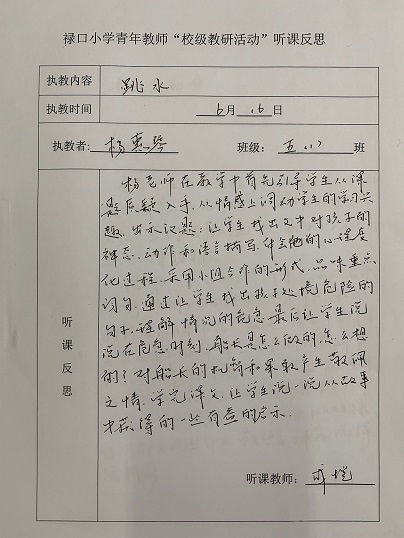 禄口小学青年教师“校级教研活动”听课反思
执教内容 跳水
执教时间 6月16日
执教者: 杨惠琴 班级: 五(1)班
听课反思
杨老师在教学中首先引导学生从课
题质疑入手,从情感上调动学生的学习兴
趣。出示议题:让学生找出文中对孩子的
神态、动作和语言描写,体会他的心理变
化过程,采用小组合作的形式,品味重点
词句,通过让学生找出孩子处境危险的
句子,理解情况的危急,最后让学生说
说在危急时刻,船长是怎么做的,怎么想
的?对船长的机智和果敢产生敬佩
之情。学完课文,让学生说一说从故事
中获得的一些有益的启示.
听课教师: